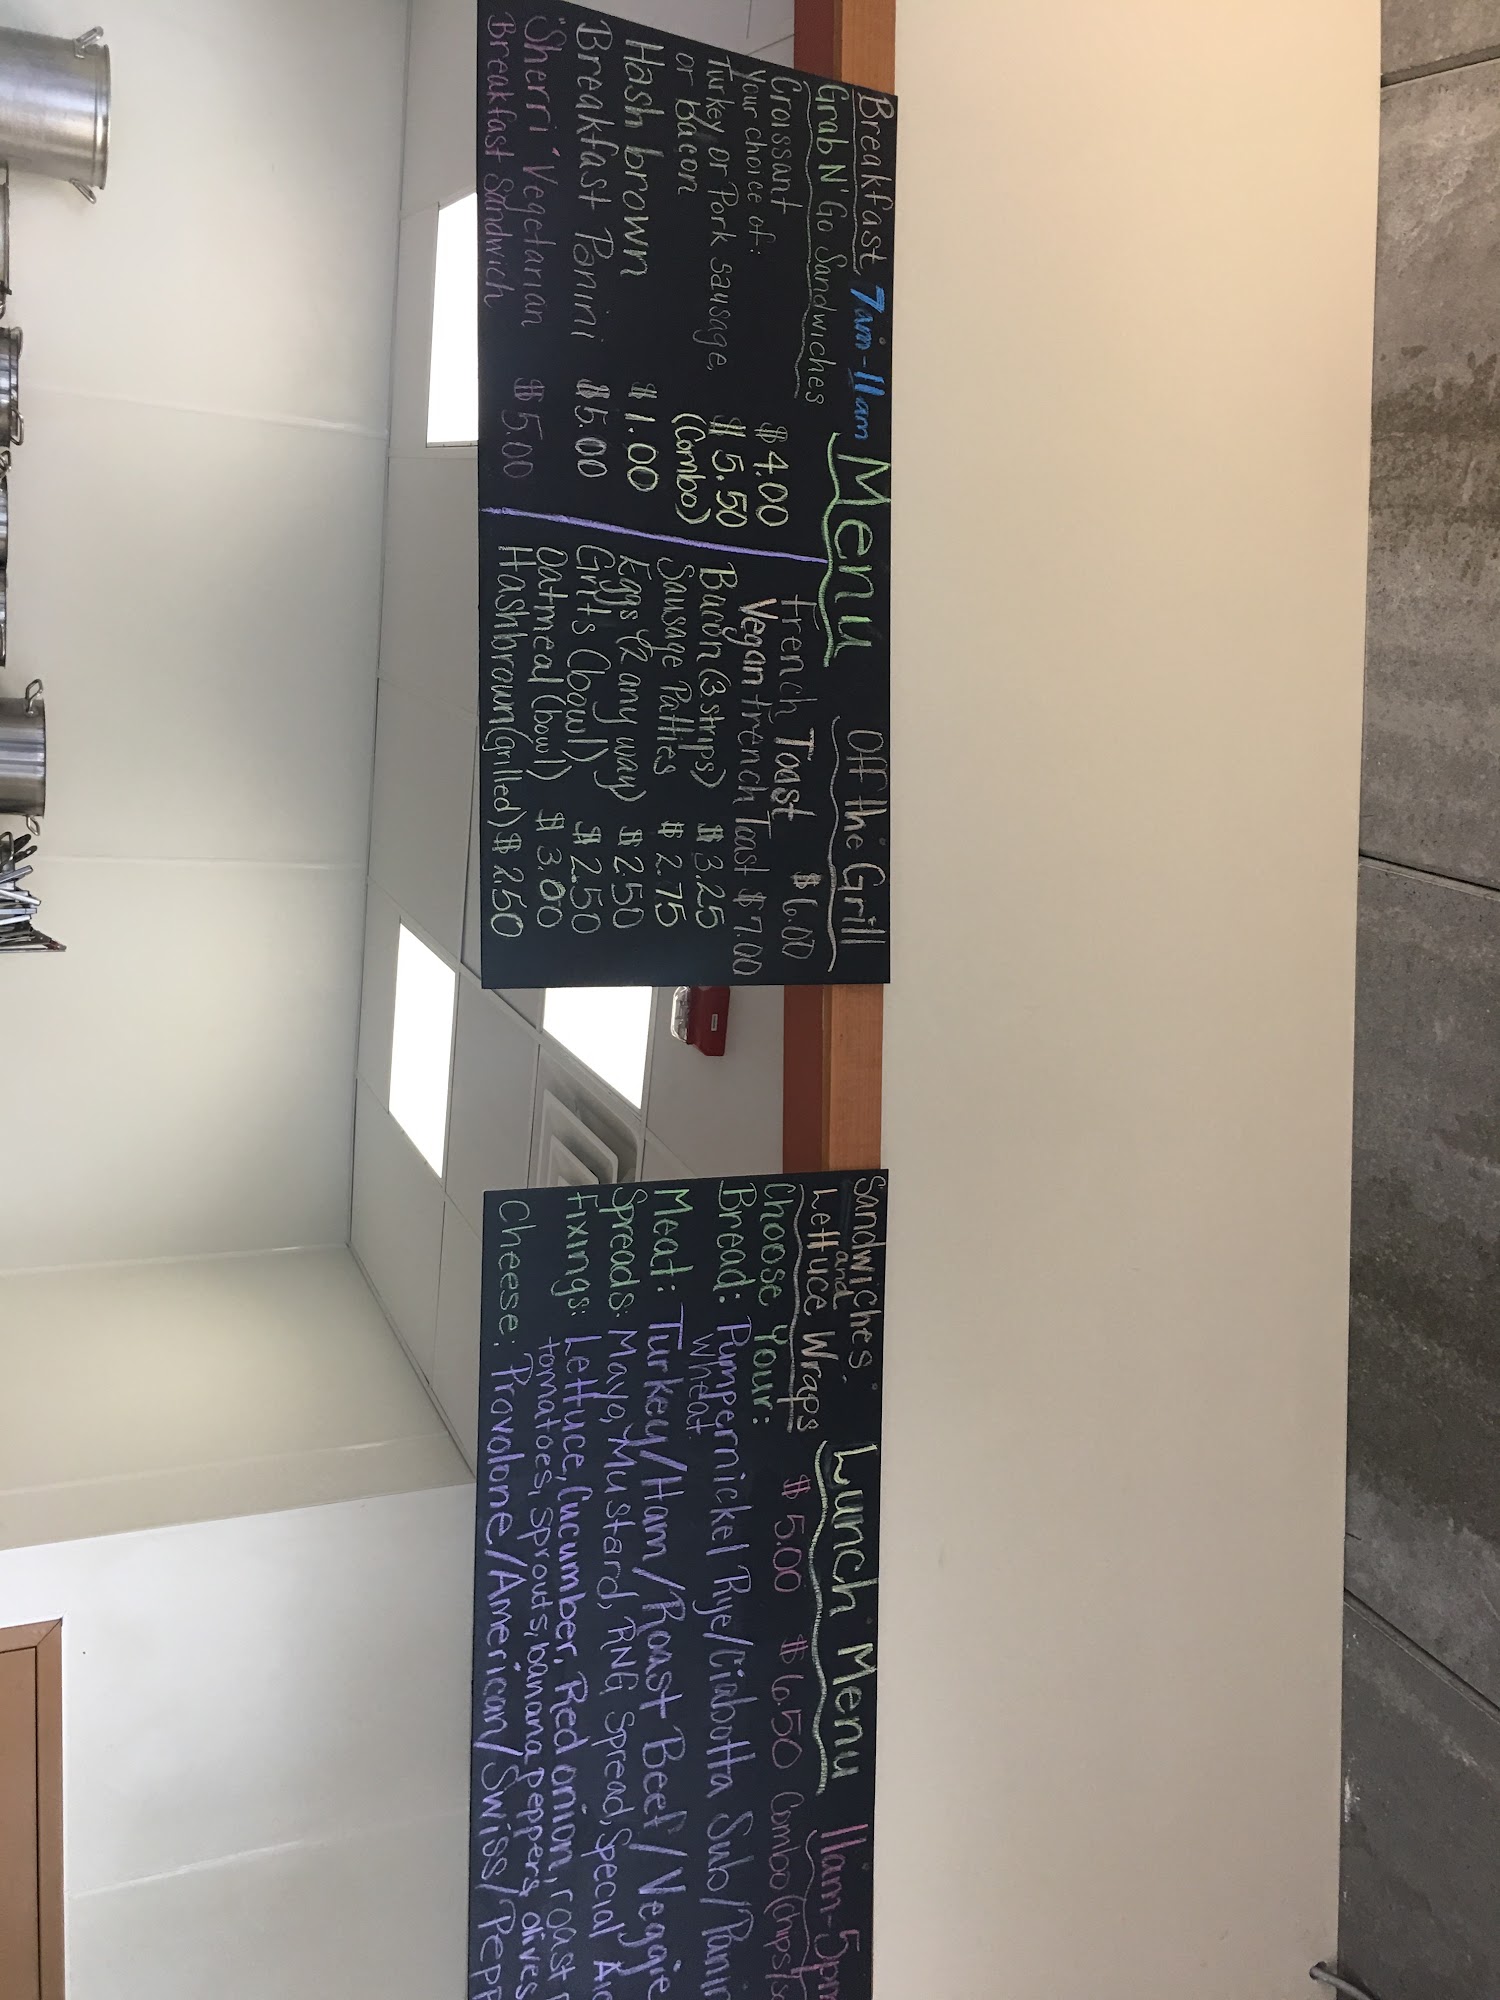 Breakfast 7am-11am
Menu
Grab N' Go Sandwiches
Croissant $4.00
your choice of: $5.50
Turkey or Pork sausage, (Combo)
or Bacon
Hash brown $1.00
Breakfast Panini $5.00
"Sherri" Vegetarian $5.00
Breakfast Sandwich
Off the Grill
French Toast $6.00
Vegan French Toast $7.00
Bacon (3 strips) $3.25
Sausage Patties $2.75
Eggs (2 any way) $2.50
Grits (bowl) $2.50
Oatmeal (bowl) $3.00
Hashbrown (grilled) $2.50
Lunch Menu
11am-5pm
Sandwiches
and
Lettuce Wraps
Choose Your: $5.00 $6.50 Combo (chips/
Bread: Pumpernickel Rye/Ciabotta Sub/Panin
Wheat
Meat: Turkey/Ham/Roast Beef/Veggie
Spreads: Mayo, Mustard, RNG Spread, Special
Fixings: Lettuce, Cucumber, Red onion, roast
tomatoes, sprouts, banana peppers, olives
Cheese: Provolone/American/Swiss/Pepp